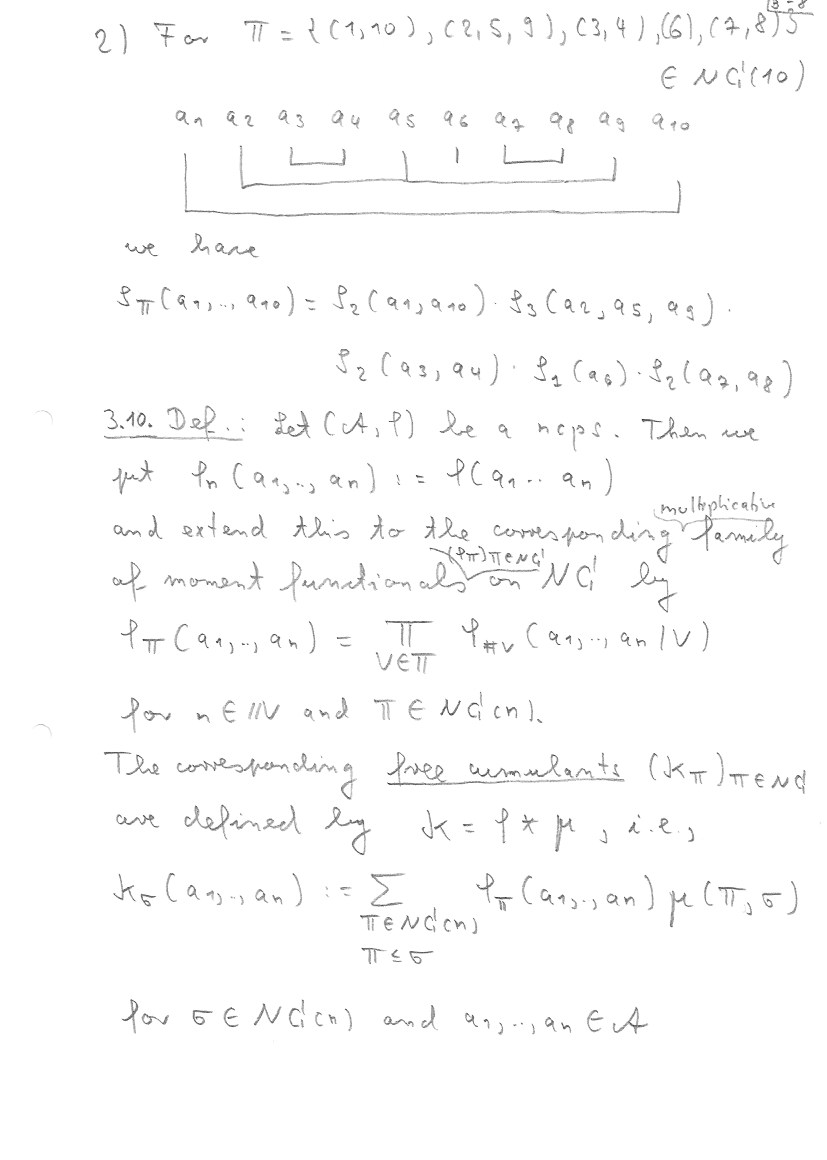 3-8
2) For π = {(1,10), (2,5,9), (3,4), (6), (7,8)}
∈ NC(10)
a1 a2 a3 a4 a5 a6 a7 a8 a9 a10
we have
gπ(a1,..,a10) = g2(a1,a10) · g3(a2,a5,a9) ·
g2(a3,a4) · g1(a6) · g2(a7,a8)
3.10. Def.: Let (A,φ) be a ncps. Then we
put φn(a1,..,an) := φ(a1..an)
and extend this to the corresponding multiplicative family
of moment functionals (φπ)π∈NC on NC by
φπ(a1,..,an) = ∏V∈π φ#V(a1,..,an|V)
for n ∈ ℕ and π ∈ NC(n).
The corresponding free cumulants (κπ)π∈NC
are defined by κ = φ * μ, i.e.,
κσ(a1,..,an) := ∑π∈NC(n), π≤σ φπ(a1,..,an) μ(π,σ)
for σ ∈ NC(n) and a1,..,an ∈ A